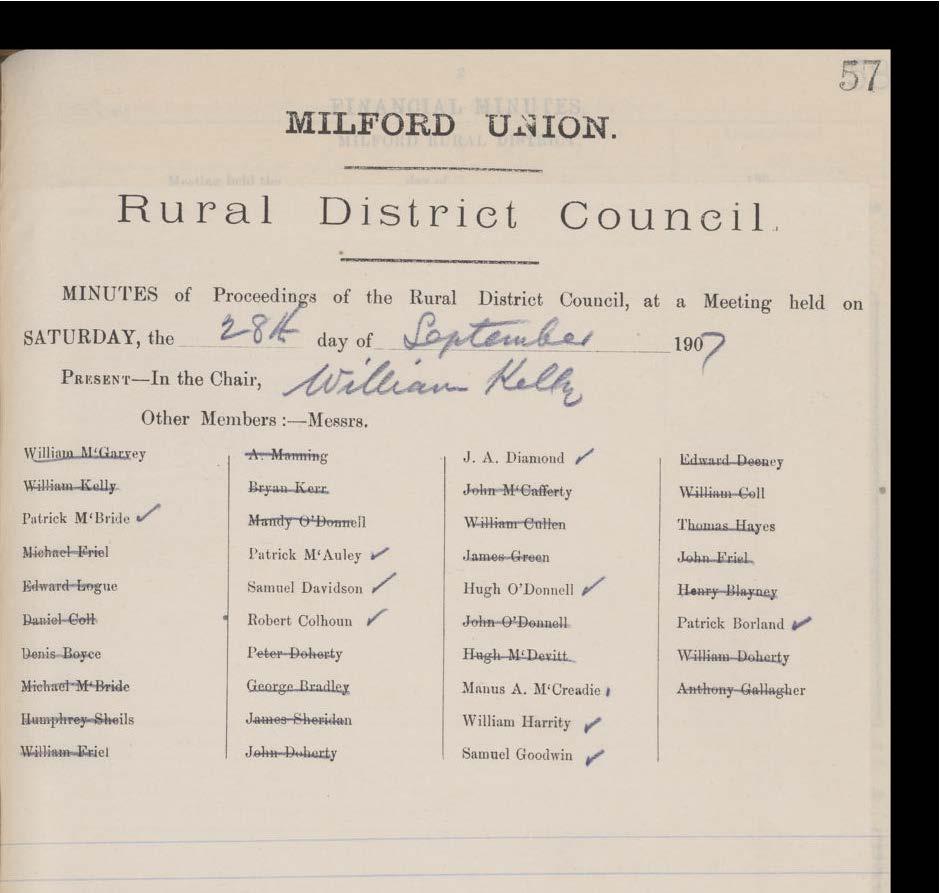 57
MILFORD UNION.
Rural District Council.
MINUTES of Proceedings of the Rural District Council, at a Meeting held on
SATURDAY, the 28th day of September 1907
PRESENT—In the Chair, William Kelly
Other Members :—Messrs.
William M‘Garvey
William Kelly
Patrick M‘Bride ✓
Michael Friel
Edward Logue
Daniel Coll
Denis Boyce
Michael M‘Bride
Humphrey Sheils
William Friel
A. Manning
Bryan Kerr
Mandy O’Donnell
Patrick M‘Auley ✓
Samuel Davidson ✓
Robert Colhoun ✓
Peter Doherty
George Bradley
James Sheridan
John Doherty
J. A. Diamond ✓
John M‘Cafferty
William Cullen
James Green
Hugh O’Donnell ✓
John O’Donnell
Hugh M‘Devitt
Manus A. M‘Creadie
William Harrity ✓
Samuel Goodwin ✓
Edward Deeney
William Coll
Thomas Hayes
John Friel
Henry Blayney
Patrick Borland ✓
William Doherty
Anthony Gallagher